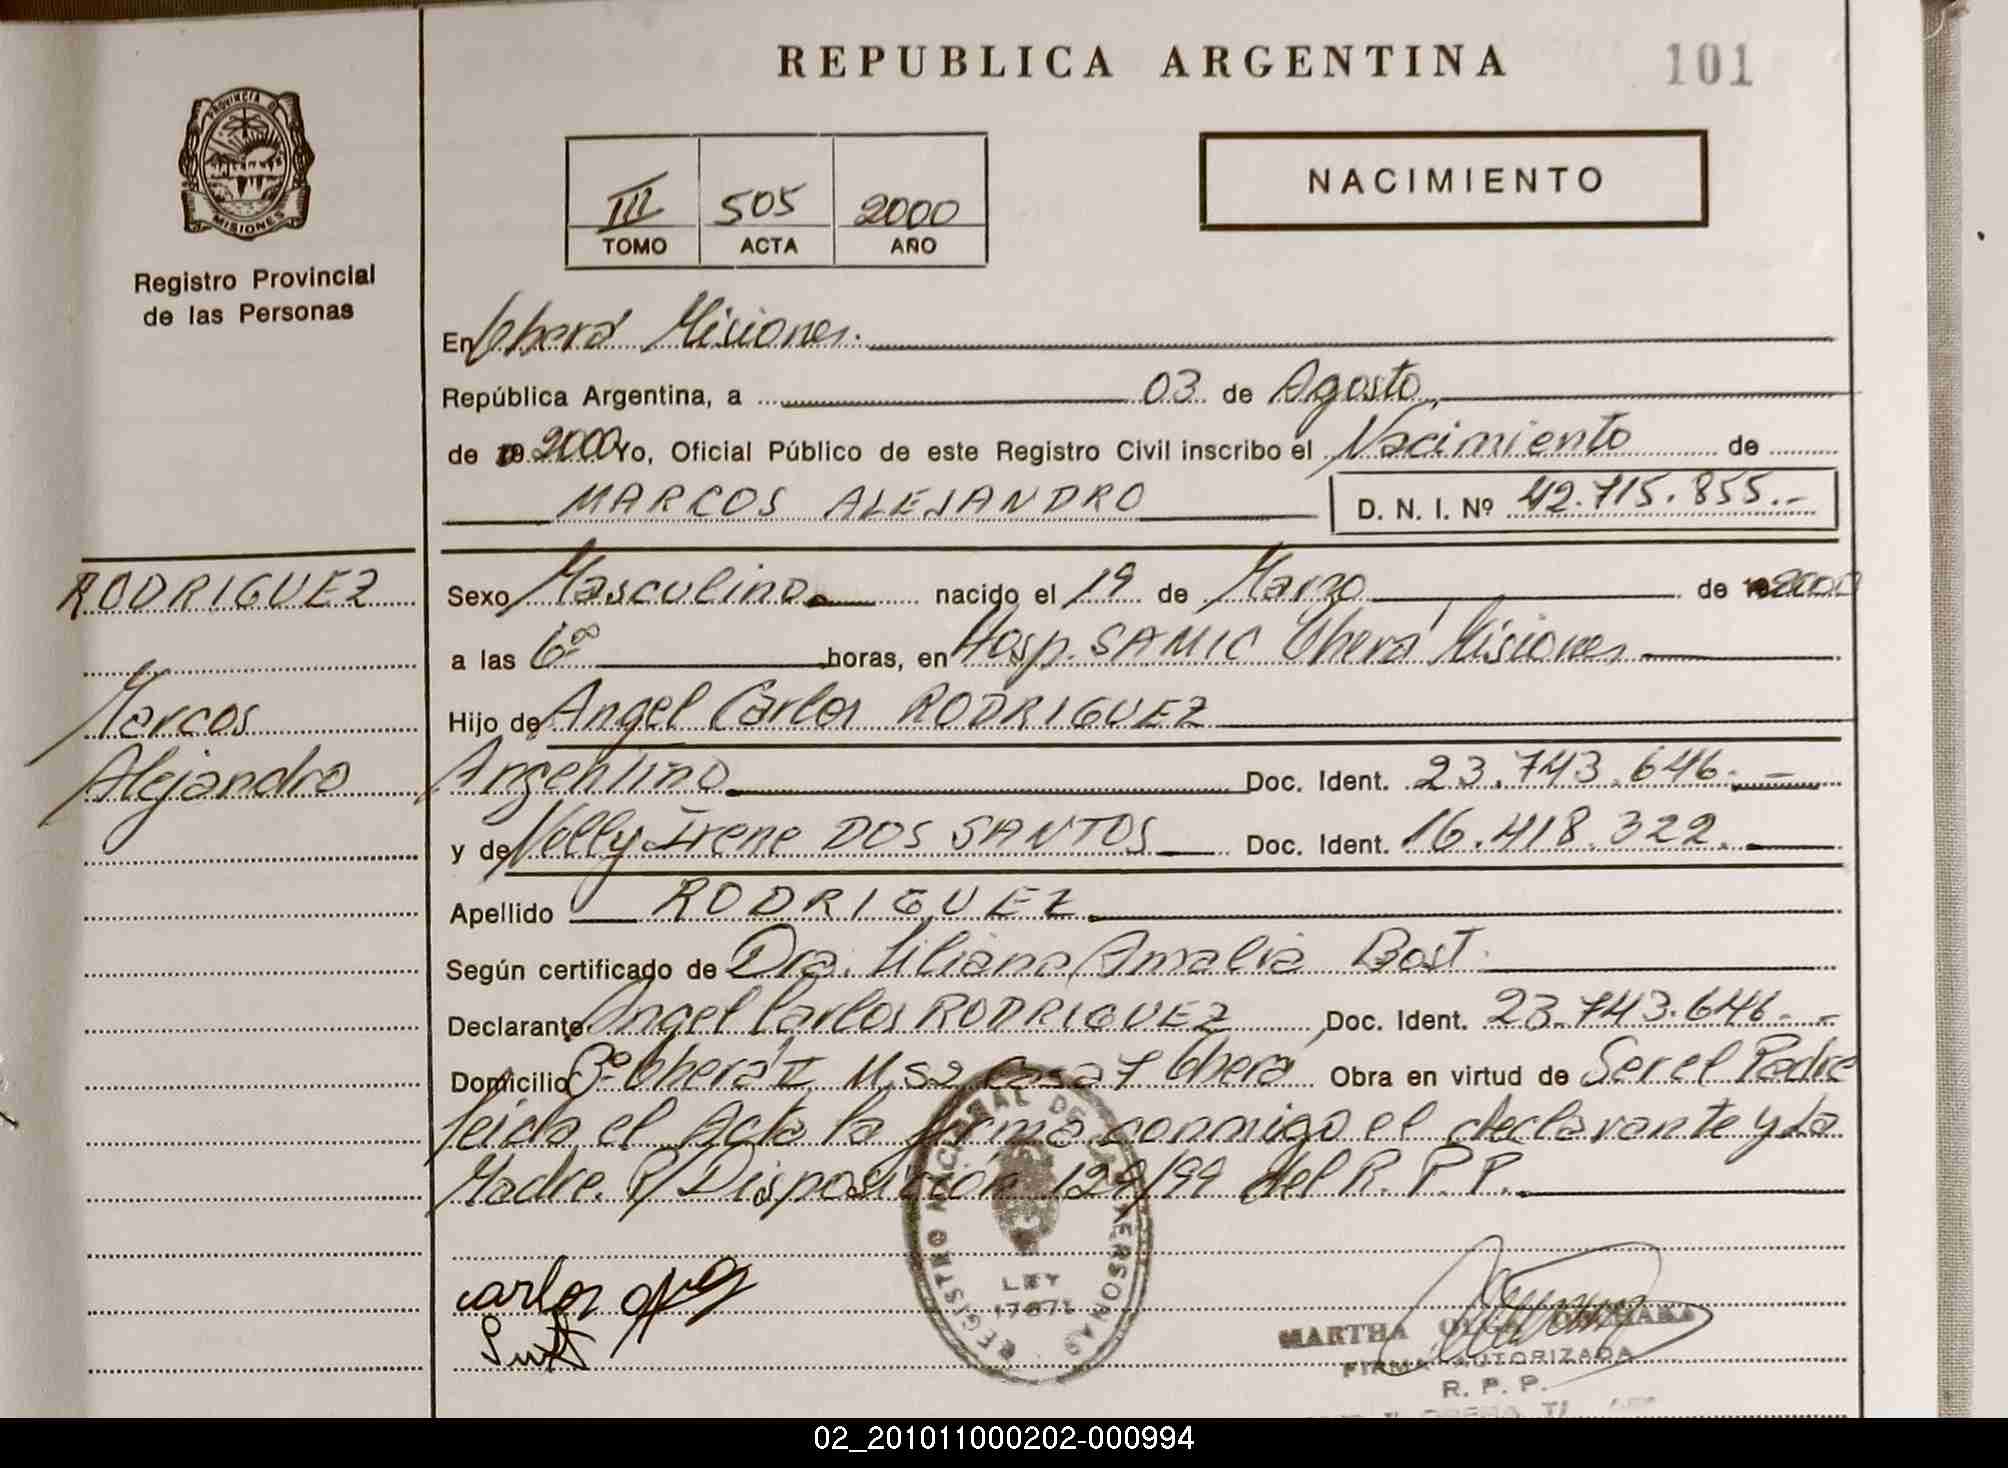 REPUBLICA ARGENTINA
101
PROVINCIA DE
MISIONES
Registro Provincial
de las Personas
III 505 2000
TOMO ACTA AÑO
NACIMIENTO
En Oberá Misiones.
República Argentina, a 03 de Agosto
de 19 2000 Yo, Oficial Público de este Registro Civil inscribo el Nacimiento de
MARCOS ALEJANDRO D. N. I. Nº 42.715.855.-
RODRIGUEZ
Marcos
Alejandro
Sexo Masculino nacido el 19 de Marzo de 19 2000
a las 6 horas, en Hosp. SAMIC Oberá Misiones
Hijo de Angel Carlos RODRIGUEZ
Argentino Doc. Ident. 23.743.646.-
y de Nelly Irene DOS SANTOS Doc. Ident. 16.418.322.
Apellido RODRIGUEZ
Según certificado de Dra. Liliana Amalia Bost.
Declarante Angel Carlos RODRIGUEZ, Doc. Ident. 23.743.646.-
Domicilio Bº Oberá II M 52 casa 7 Oberá Obra en virtud de Ser el Padre
leida el Acta la firma conmigo el declarante y La
Madre. P/Disposición 129/99 del R.P.P.
REGISTRO NACIONAL DE LAS PERSONAS
LEY
17671
Carlos
MARTHA OLGA
FIRMA AUTORIZADA
R. P. P.
02_201011000202-000994